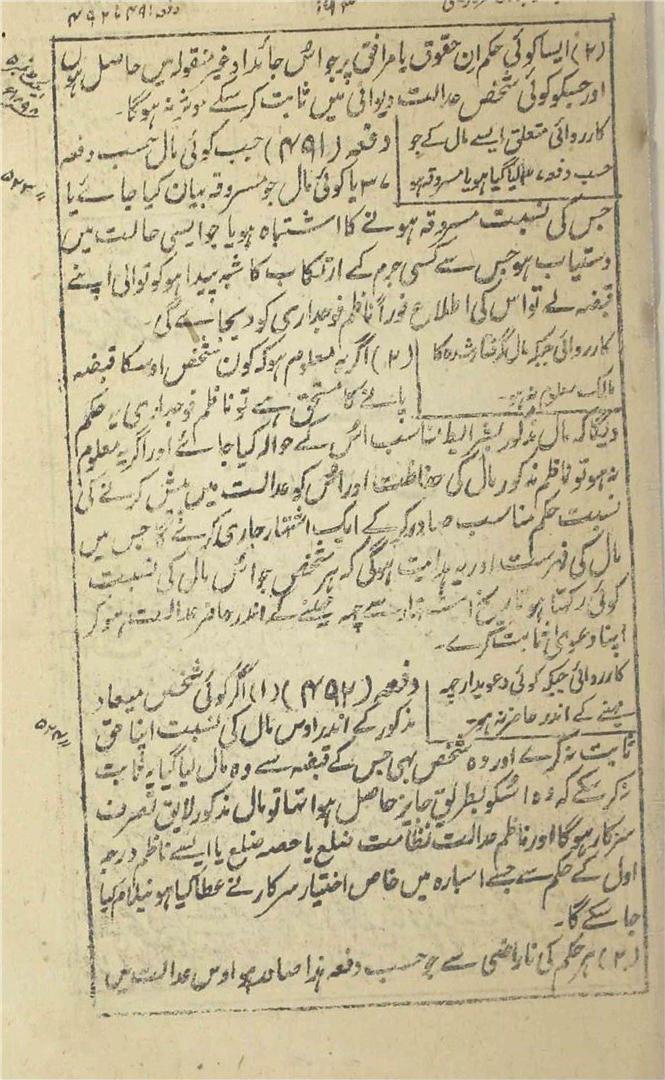 دفعہ ۴۹۱ تا ۴۹۲
(۲) ایسا کوئی حکم ان حقوق یا مرافق پر جو اس جائداد غیر منقولہ میں حاصل ہوں
اور جسکو کوئی شخص عدالت دیوانی میں ثابت کرسکے موثر نہ ہوگا۔
کارروائی متعلق ایسے مال کے جو
حسب دفعہ ۳۷ لیا گیا ہو یا مسروقہ ہو
دفعہ (۴۹۱) جب کوئی مال حسب دفعہ
۳۷ یا کوئی مال جو مسروقہ بیان کیا جائے یا
جس کی نسبت مسروقہ ہونے کا اشتباہ ہو یا جو ایسی حالت میں
دستیاب ہو جس سے کسی جرم کے ارتکاب کا شبہ پیدا ہو کوتوالی اپنے
قبضہ لے تو اس کی اطلاع فوراً ناظم فوجداری کو دیجائے گی۔
۵۲۳ //
کارروائی جبکہ مال گرفتار شدہ کا
مالک معلوم نہ ہو۔
(۲) اگر یہ معلوم ہو کہ کون شخص اوسکا قبضہ
پانے کا مستحق ہے تو ناظم فوجداری یہ حکم
دیگا کہ مال مذکور بشرائط مناسب اس کے حوالہ کیا جائے اور اگر یہ معلوم
نہ ہو تو ناظم مذکور مال کی حفاظت اور اس کو عدالت میں پیش کرنے کی
نسبت حکم مناسب صادر کر کے ایک اشتہار جاری کرنے گا جس میں
مال کی فہرست اور یہ ہدایت ہوگی کہ ہر شخص جو اس مال کی نسبت
کوئی رکھتا ہو تاریخ اشتہار سے چہ مہینے کے اندر حاضر عدالت ہو کر
اپنا دعویٰ ثابت کرے۔
کارروائی جبکہ کوئی دعویدار چہ
مہینے کے اندر حاضر نہ ہو۔
دفعہ (۴۹۲) (۱) اگر کوئی شخص میعاد
مذکور کے اندر اوس مال کی نسبت اپنا حق
۵۲۴ //
ثابت نہ کرے اور وہ شخص بھی جس کے قبضہ سے وہ مال لیا گیا یہ ثابت
نہ کرسکے کہ وہ اسکو بطریق جایز حاصل ہوا تہا تو مال مذکور لایق تصرف
سرکار ہوگا اور ناظم عدالت نظامت ضلع یا حصہ ضلع یا ایسے ناظم درجہ
اول کے حکم سے جسے اسبارہ میں خاص اختیار سرکار نے عطا کیا ہو نیلام کیا
جا سکے گا۔
(۲) ہر حکم کی ناراضی سے جو حسب دفعہ ہذا صادر ہو اوس عدالت میں